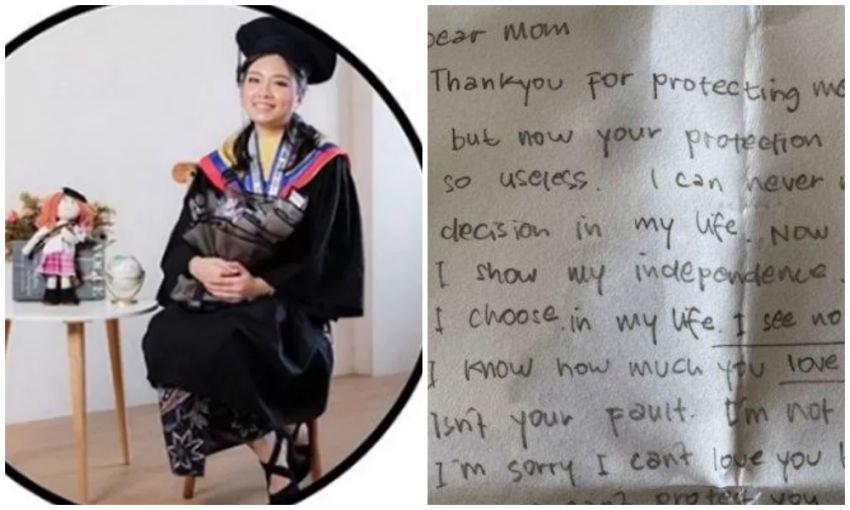 Dear Mom
Thankyou for protecting me
but now your protection
so useless. I can never
decision in my life. Now
I show my independence.
I choose in my life. I see no
I know how much you love
Isn't your fault. I'm not
I'm sorry I can't love you
can't protect you.